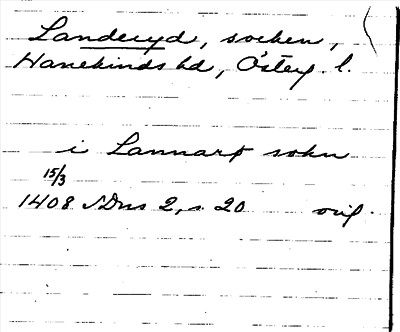 Landeryd, socken,
Hanekinds hd, Österg. l.
i Lannarþ sokn
15/3
1408 SDns 2, s. 20 orig.